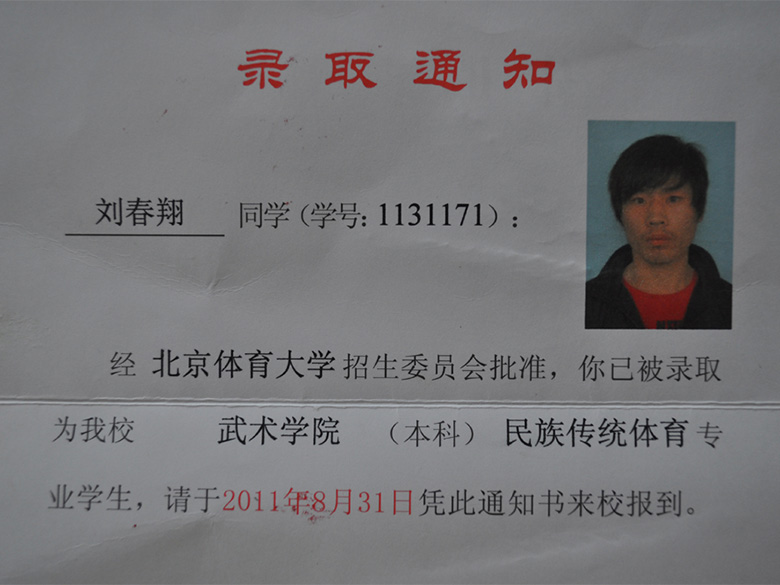 录取通知
刘春翔 同学(学号:1131171):
经 北京体育大学 招生委员会批准,你已被录取
为我校 武术学院 (本科) 民族传统体育 专
业学生,请于2011年8月31日凭此通知书来校报到。